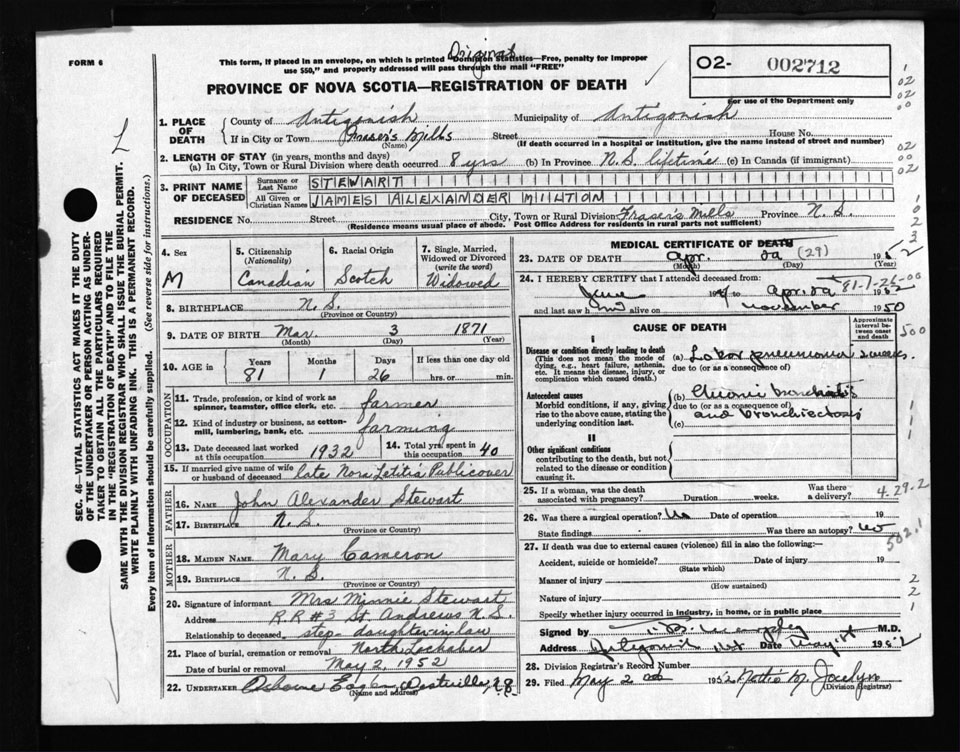 FORM 6
Original
This form, if placed in an envelope, on which is printed "Dominion Statistics—Free, penalty for improper
use $50," and properly addressed will pass through the mail "FREE"
PROVINCE OF NOVA SCOTIA—REGISTRATION OF DEATH
02- 002712
For use of the Department only
1. PLACE OF DEATH
County of Antigonish Municipality of Antigonish
If in City or Town Fraser's Mills Street House No.
(Name) (If death occurred in a hospital or institution, give the name instead of street and number)
2. LENGTH OF STAY (in years, months and days)
(a) In City, Town or Rural Division where death occurred 8 yrs (b) In Province N.S. lifetime (c) In Canada (if immigrant)
3. PRINT NAME OF DECEASED
Surname or Last Name STEWART
All Given or Christian Names JAMES ALEXANDER MILTON
RESIDENCE No. Street City, Town or Rural Division Fraser's Mills Province N.S.
(Residence means usual place of abode. Post Office Address for residents in rural parts not sufficient)
4. Sex M
5. Citizenship (Nationality) Canadian
6. Racial Origin Scotch
7. Single, Married, Widowed or Divorced (write the word) Widowed
8. BIRTHPLACE N.S.
(Province or Country)
9. DATE OF BIRTH Mar. 3 1871
(Month) (Day) (Year)
10. AGE in Years Months Days If less than one day old
81 1 26 hrs. or min.
OCCUPATION
11. Trade, profession, or kind of work as spinner, teamster, office clerk, etc. farmer
12. Kind of industry or business, as cotton-mill, lumbering, bank, etc. farming
13. Date deceased last worked at this occupation 1932
14. Total yrs. spent in this occupation 40
15. If married give name of wife or husband of deceased late Nora Letitia Publicover
FATHER
16. NAME John Alexander Stewart
17. BIRTHPLACE N.S.
(Province or Country)
MOTHER
18. MAIDEN NAME. Mary Cameron
19. BIRTHPLACE N.S.
(Province or Country)
20. Signature of informant Mrs Minnie Stewart
Address R.R #3 St. Andrews N.S.
Relationship to deceased step-daughter-in-law
21. Place of burial, cremation or removal North Lochaber
Date of burial or removal May 2, 1952
22. UNDERTAKER Osborne
(Name and address)
MEDICAL CERTIFICATE OF DEATH
23. DATE OF DEATH Apr. (29) 195 2
(Month) (Day) (Year)
24. I HEREBY CERTIFY that I attended deceased from: 81-1-26-00
June
and last saw h alive on November 1950
CAUSE OF DEATH
Approximate interval between onset and death
I
Disease or condition directly leading to death
(This does not mean the mode of dying, e.g., heart failure, asthenia, etc. It means the disease, injury, or complication which caused death.)
(a) Lobar pneumonia 2 weeks.
due to (or as a consequence of)
Antecedent causes
Morbid conditions, if any, giving rise to the above cause, stating the underlying condition last.
(b) Chronic bronchitis
due to (or as a consequence of)
and bronchiectasis
(c)
II
Other significant conditions
contributing to the death, but not related to the disease or condition causing it.
25. If a woman, was the death associated with pregnancy? Duration weeks. Was there a delivery?
4.29.2
26. Was there a surgical operation? No Date of operation 19
State findings Was there an autopsy? no
502.1
27. If death was due to external causes (violence) fill in also the following:—
Accident, suicide or homicide? Date of injury 19
(State which)
Manner of injury
(How sustained)
Nature of injury
Specify whether injury occurred in industry, in home, or in public place
Signed by M.D.
Address Antigonish Date May 1st 1952
28. Division Registrar's Record Number
29. Filed May 2nd 1952 Nettie M. Jocelyn
(Division Registrar)
SEC. 46—VITAL STATISTICS ACT MAKES IT THE DUTY
OF THE UNDERTAKER OR PERSON ACTING AS UNDER-
TAKER TO OBTAIN ALL THE PARTICULARS REQUIRED
IN THE "REGISTRATION OF DEATH" AND TO FILE THE
SAME WITH THE DIVISION REGISTRAR WHO SHALL ISSUE THE BURIAL PERMIT.
WRITE PLAINLY WITH UNFADING INK. THIS IS A PERMANENT RECORD.
Every item of information should be carefully supplied. (See reverse side for instructions.)